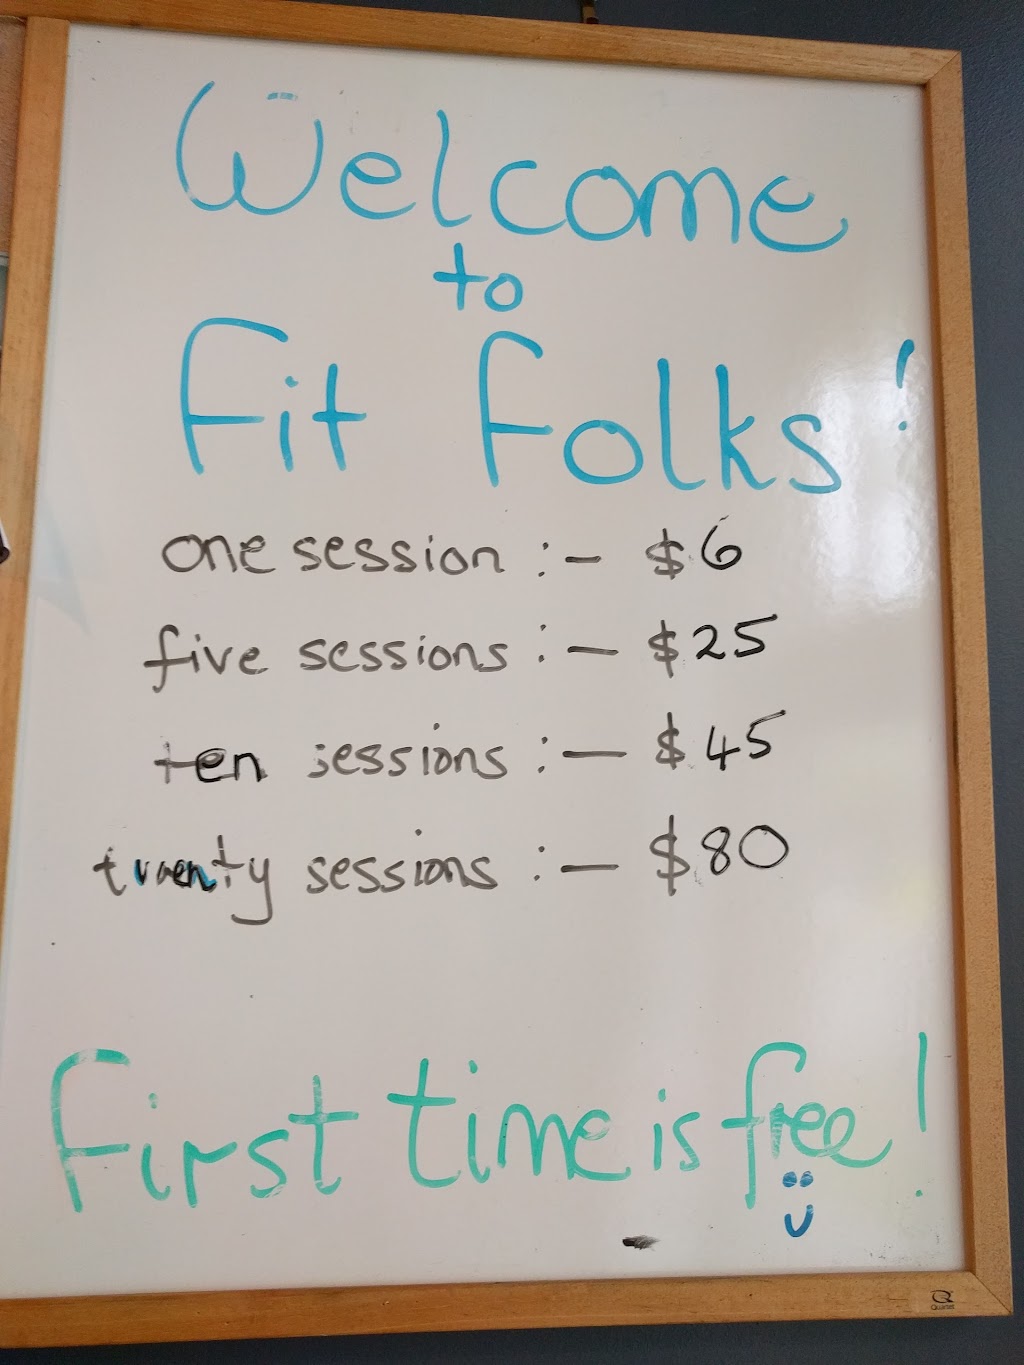 Welcome
to
Fit Folks!
one session :- $6
five sessions :- $25
ten sessions :- $45
twenty sessions :- $80
First time is free!
Quartet